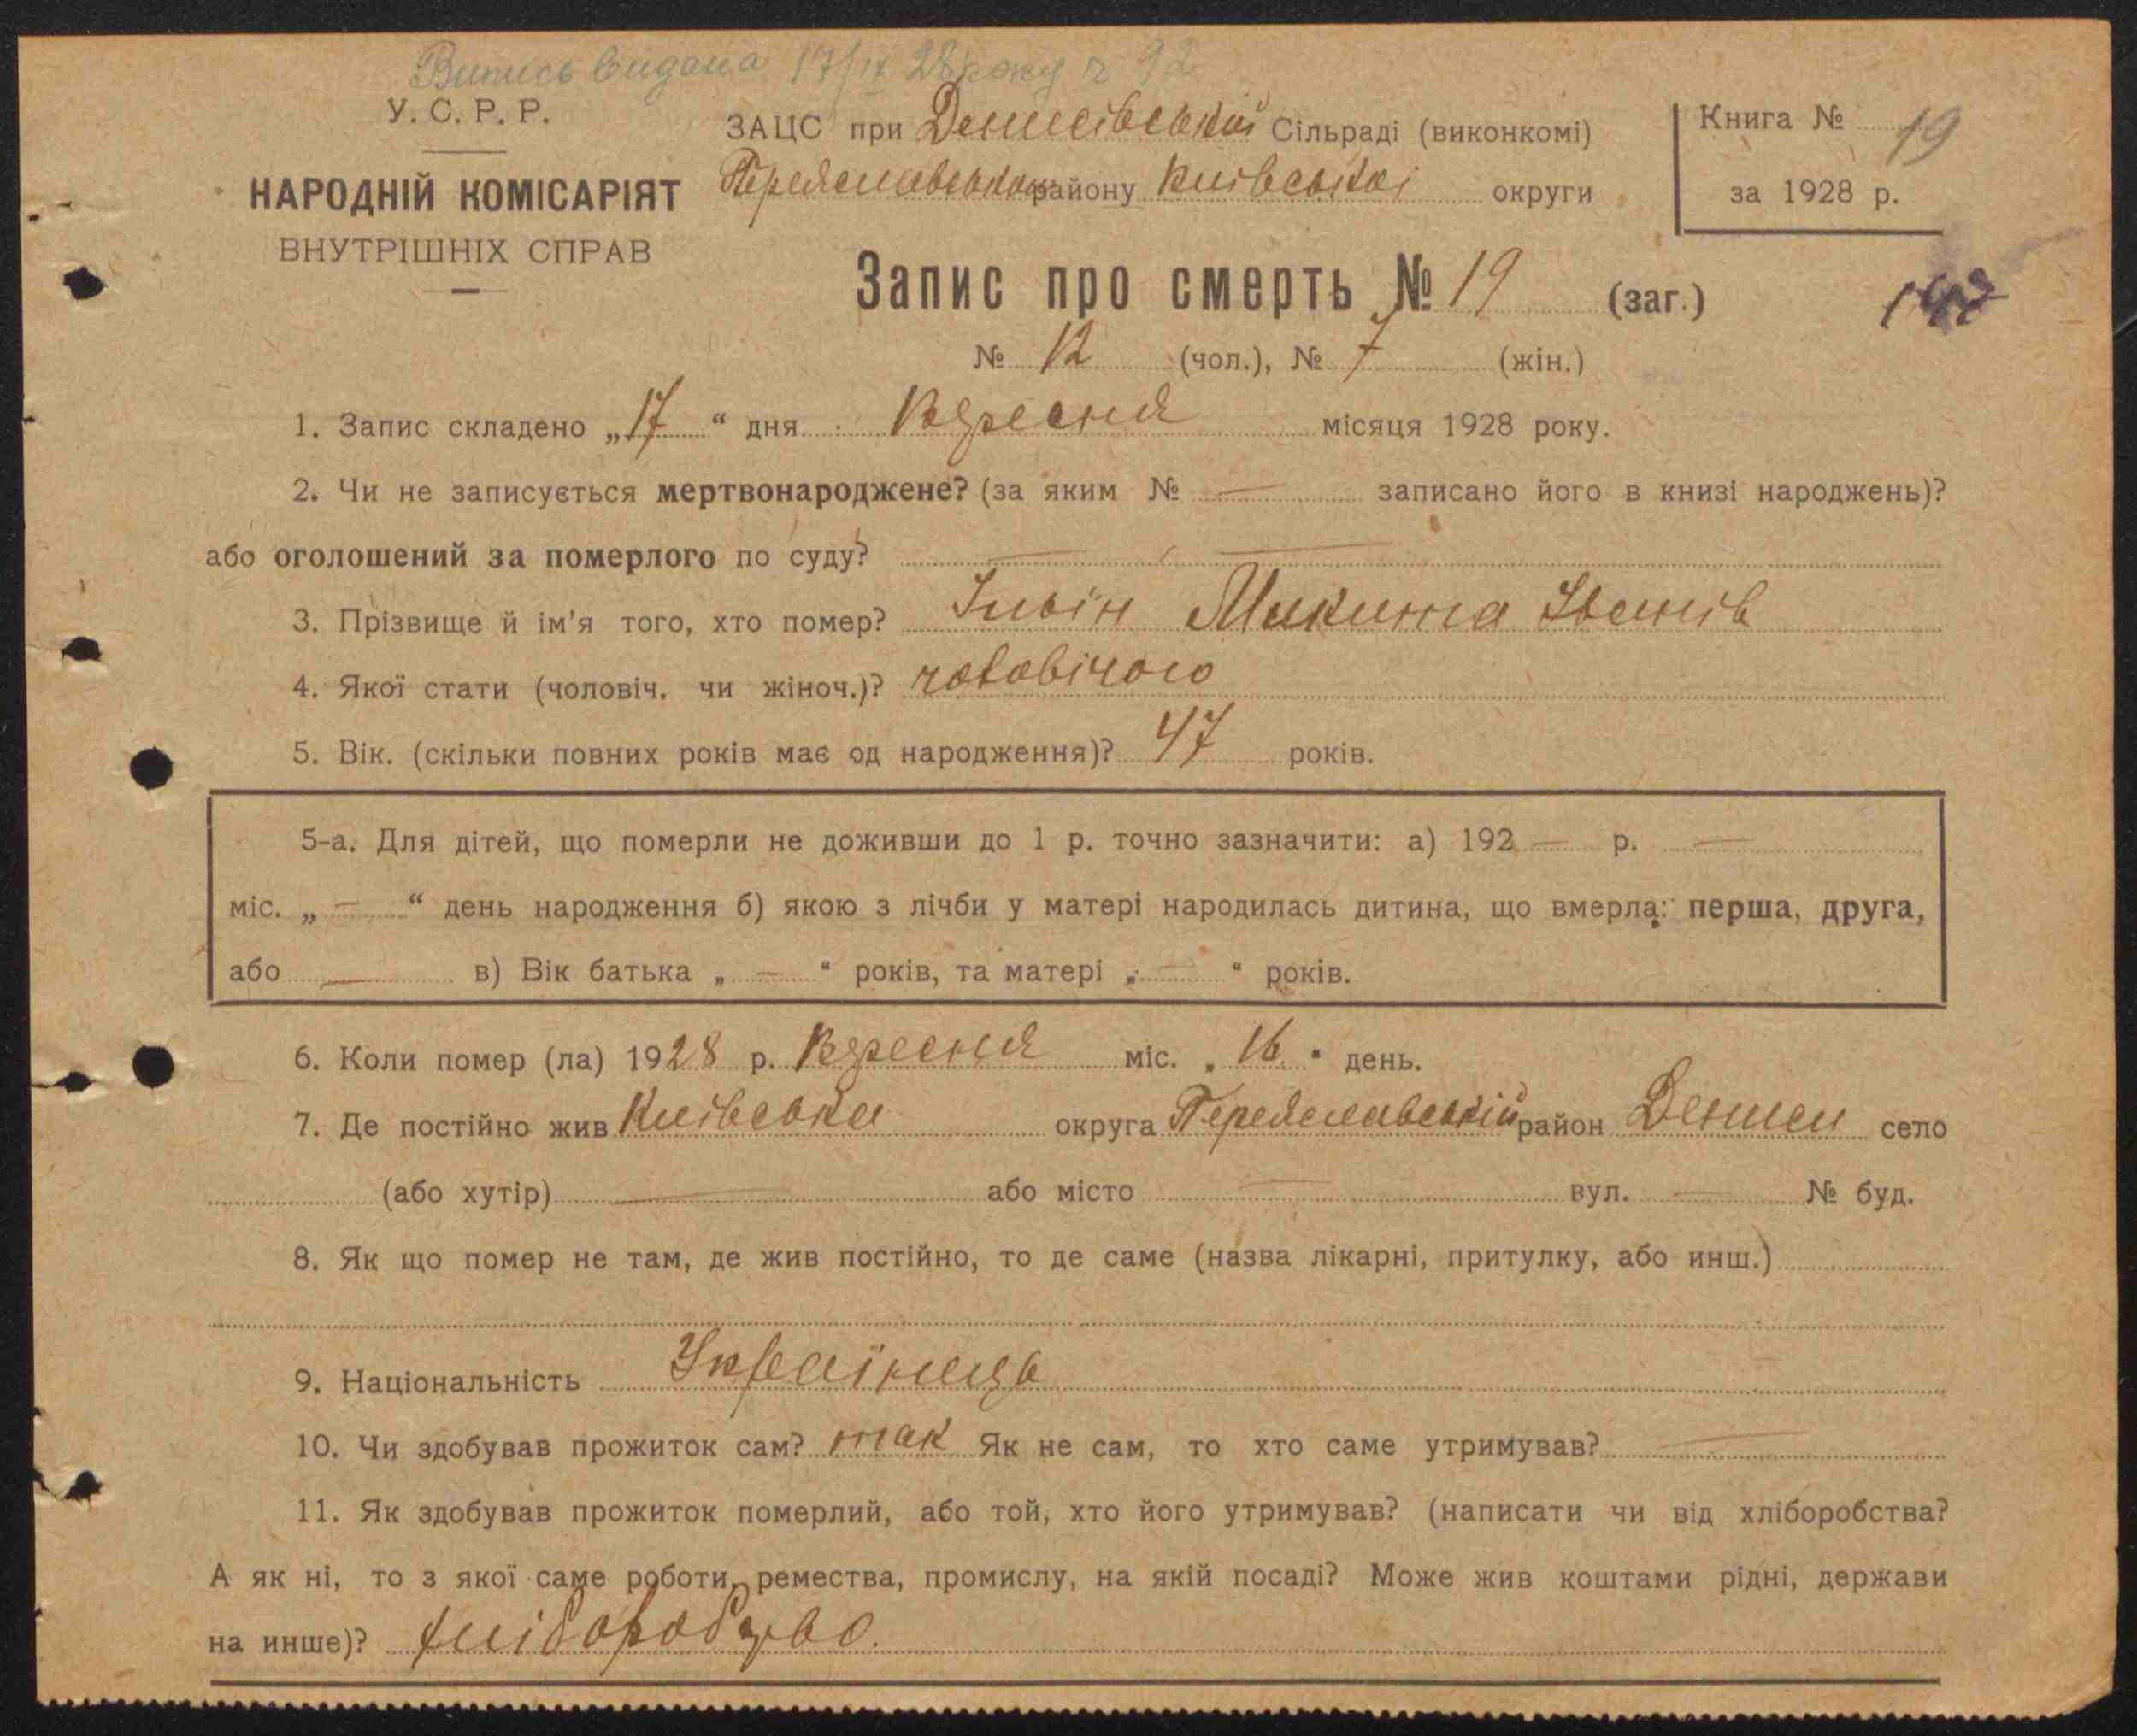 Випись видана 17/IX 28 року ч 92
У. С. Р. Р.
НАРОДНІЙ КОМІСАРІЯТ
ВНУТРІШНІХ СПРАВ
ЗАЦС при Денисівській Сільраді (виконкомі)
Переяславського району Київської округи
Книга № 19
за 1928 р.
Запис про смерть № 19 (заг.)
№ 12 (чол.), № 7 (жін.)
1. Запис складено „17“ дня Вересня місяця 1928 року.
2. Чи не записується мертвонароджене? (за яким № — записано його в книзі народжень)?
або оголошений за померлого по суду? — —
3. Прізвище й ім'я того, хто помер? Ільїн Микита Іванів
4. Якої стати (чоловіч. чи жіноч.)? чоловічого
5. Вік. (скільки повних років має од народження)? 47 років.
5-а. Для дітей, що померли не доживши до 1 р. точно зазначити: а) 192 — р. —
міс. „ — “ день народження б) якою з лічби у матері народилась дитина, що вмерла: перша, друга,
або — в) Вік батька „ — “ років, та матері „ — “ років.
6. Коли помер (ла) 1928 р. Вересня міс. „16“ день.
7. Де постійно жив Київська округа Переяславський район Дениси село
(або хутір) — або місто — вул. — № буд.
8. Як що помер не там, де жив постійно, то де саме (назва лікарні, притулку, або инш.)
9. Національність Українець
10. Чи здобував прожиток сам? так Як не сам, то хто саме утримував? —
11. Як здобував прожиток померлий, або той, хто його утримував? (написати чи від хліборобства?
А як ні, то з якої саме роботи, ремества, промислу, на якій посаді? Може жив коштами рідні, держави
на инше)? хліборобство.